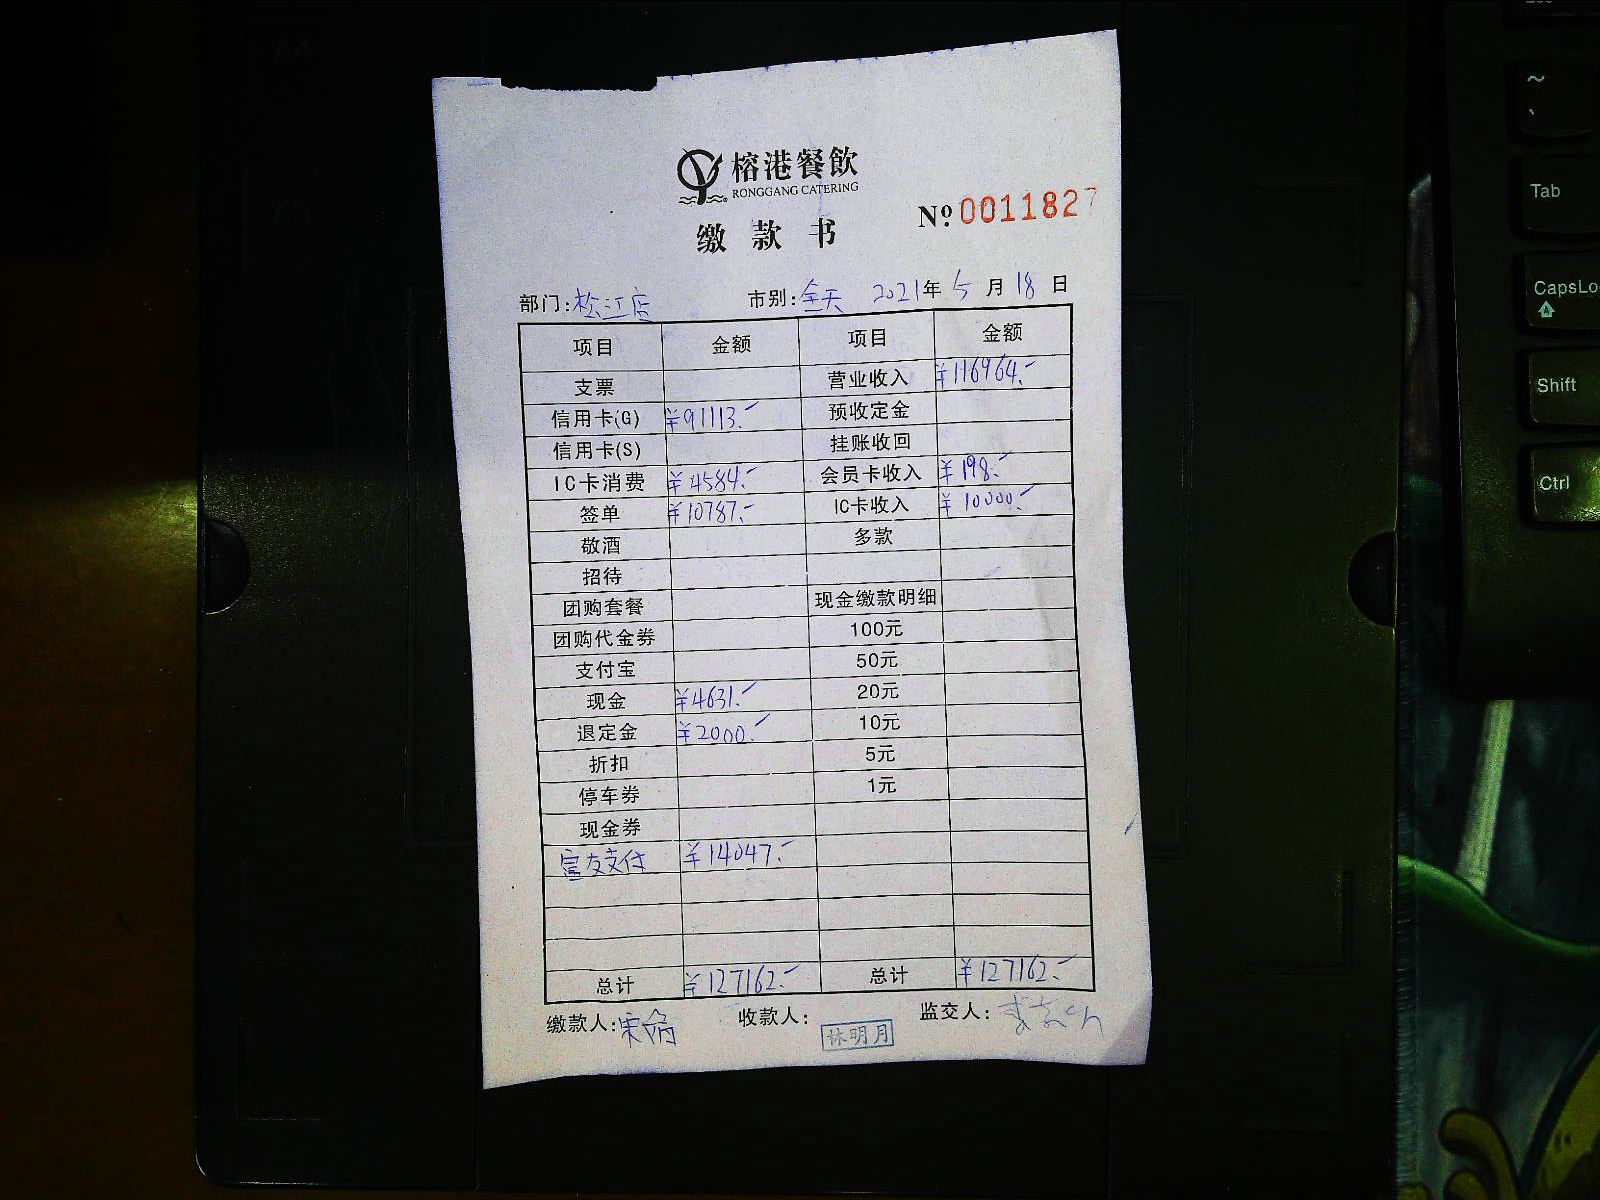 榕港餐飲
RONGGANG CATERING
缴款书
Nº 0011827
部门:松江店 市别:全天 2021年5月18日
项目 金额 项目 金额
支票 营业收入 ¥116964.-
信用卡(G) ¥91113.- 预收定金
信用卡(S) 挂账收回
IC卡消费 ¥4584.- 会员卡收入 ¥198.-
签单 ¥10787.- IC卡收入 ¥10000.-
敬酒 多款
招待
团购套餐 现金缴款明细
团购代金券 100元
支付宝 50元
现金 ¥4631.- 20元
退定金 ¥2000.- 10元
折扣 5元
停车券 1元
现金券
支付 ¥14047.-
总计 ¥127162.- 总计 ¥127162.-
缴款人:宋 收款人: 监交人:
林明月
~
`
Tab
CapsLo
Shift
Ctrl